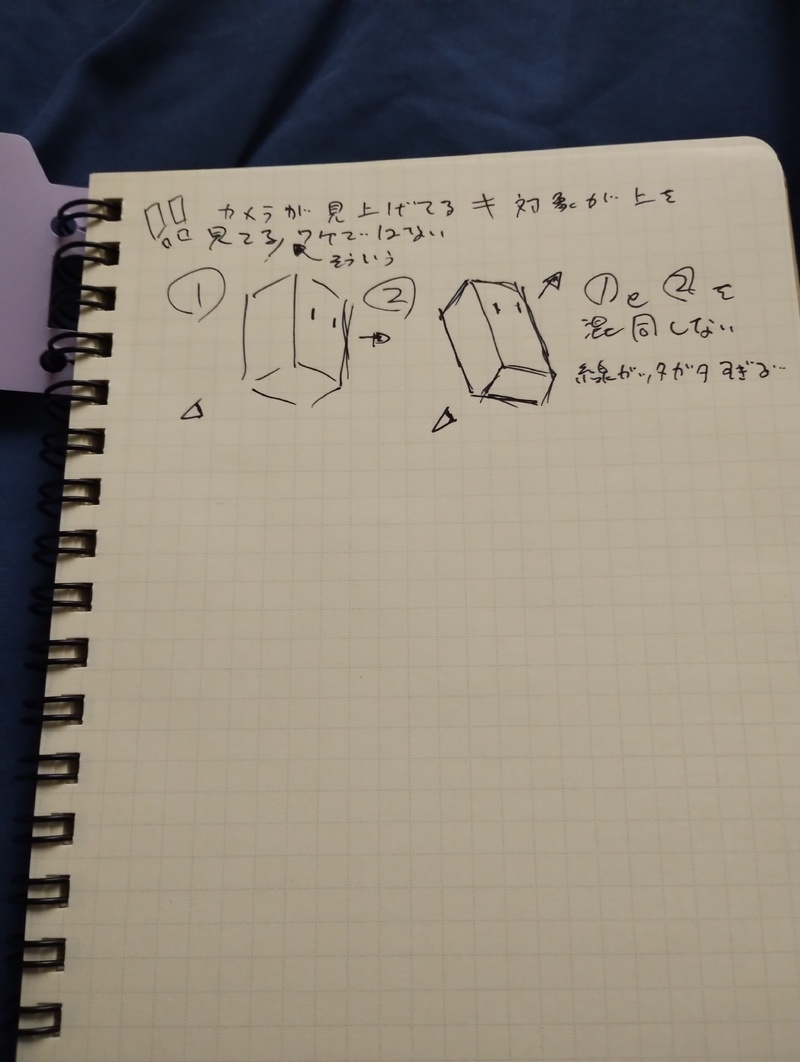 !! カメラが見上げてる キ 対象が上を
見てる、ワケではない
そういう
① ②
①と②を
混同しない
線がガタガタすぎる…